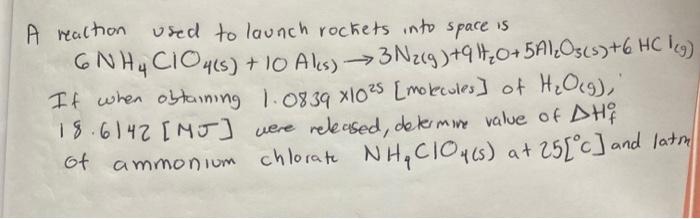 A reaction used to launch rockets into space is
6NH4ClO4(s) + 10 Al(s) → 3N2(g) + 9H2O + 5Al2O3(s) + 6 HCl(g)
If when obtaining 1.0839 x10^25 [molecules] of H2O(g),
18.6142 [MJ] were released, determine value of ΔH°f
of ammonium chlorate NH4ClO4(s) at 25[°C] and 1atm